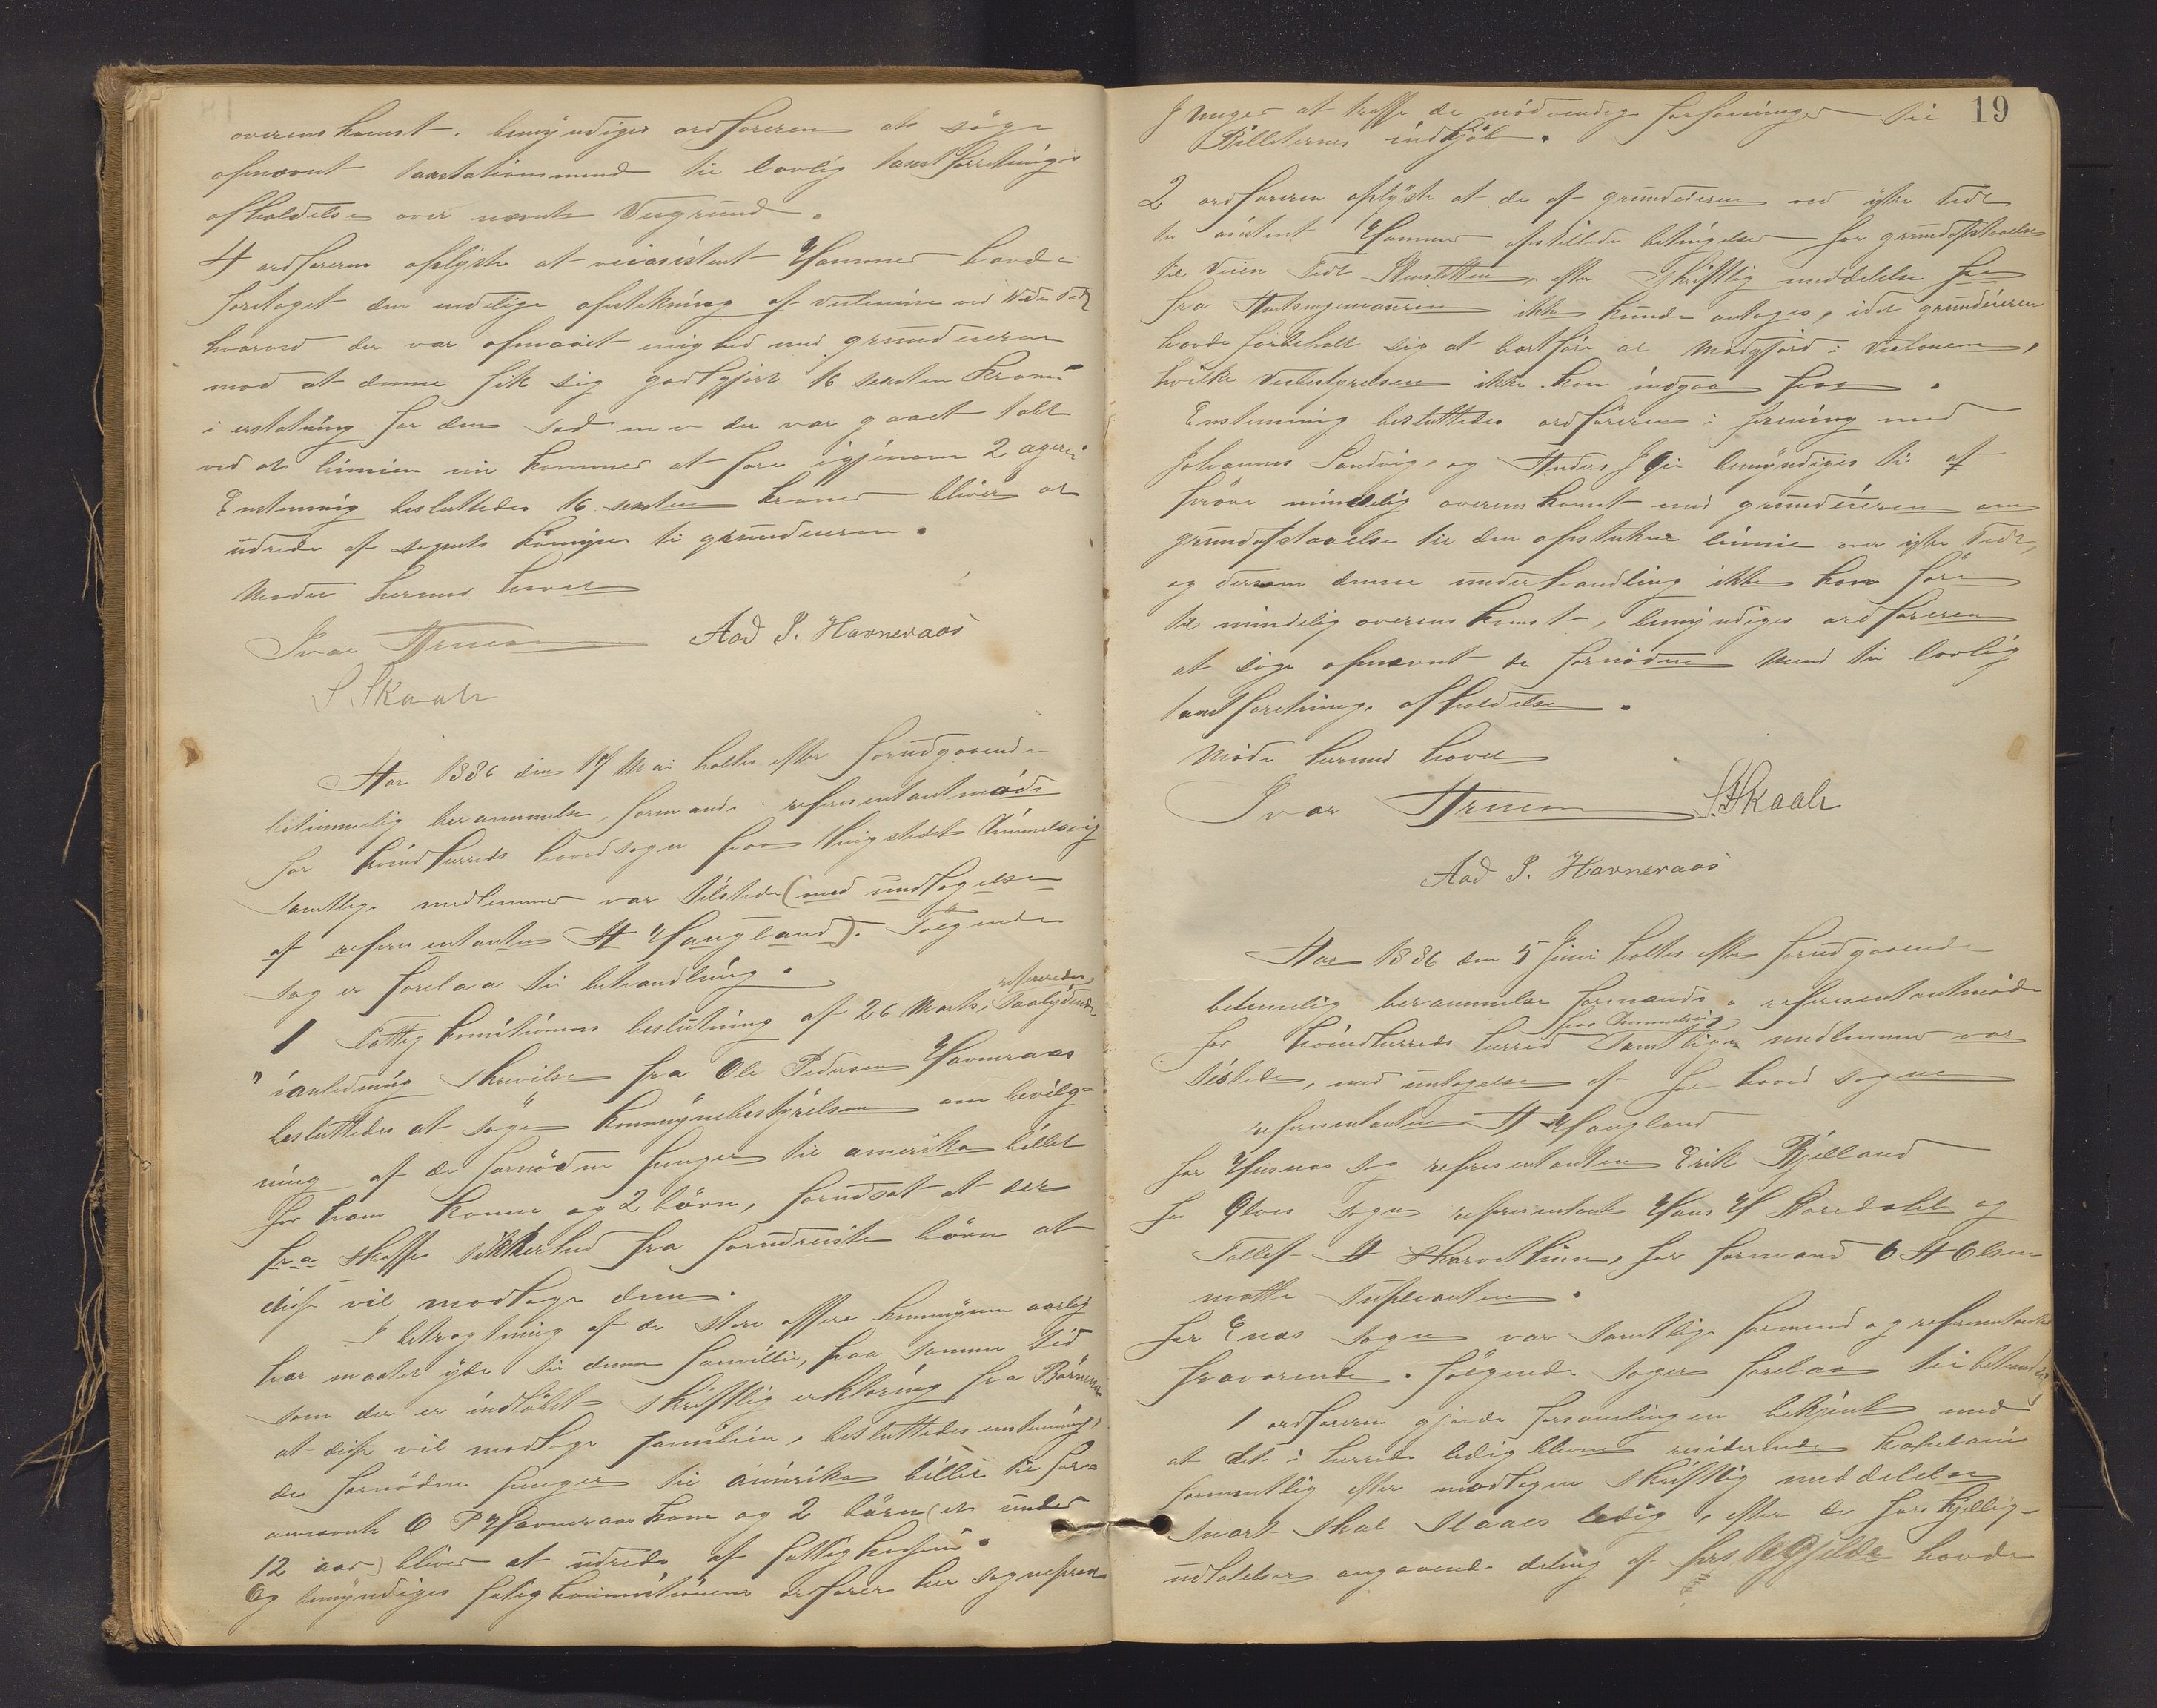 overenskomst. bemyndiges ordføreren at søge
opnævnt taxtationsmænd til lovlig taxtforretnings
afholdelse over nævnte Veigrund.
4 ordføreren oplyste at veiasistent Hammer havde
foretaget den endelige opstikning af veilinien ved
hvorved der var opnaaet enighed med grundeieren
mod at denne fik sig godtgjort 16 sexten kroner
i erstatning for den sæd m v der var gaaet tabt
ved at linien nu kommer at føre igjenem 2 agere
Enstemmig besluttedes 16 sexten kroner bliver at
udrede af sognets komune til grundeieren.
Mødet hermed hævet
Ivar Arnesen Aad P. Havneraas
S. Skaale
Aar 1886 den 17 Mai holtes efter forudgaaende
betimmelig berammelse, formands- representantmøde
for kvindherreds hovedsogn paa thingstedet Ommelsvig
samtlige medlemmer var tilstede (med undtagelse
af representanten A Haugland). Følgende
sager forelaa til behandling.
1 Fattigkomitionens beslutning af 26 Marts, refereredes saalydende
" ianledning skrivelse fra Ole Pedersen Havneraas
besluttedes at søge Kommunebestyrelsen om bevilg-
ning af de fornødne penger til amerika billet
for ham kone og 2 børn, forudsat at der
fra skaffes sikkerhed fra forudreiste børn at
disse vil modtage dem.
I betragtning af de store offere kommunen aarlig
har maattet yde til denne familie, paa samme tid
som der er indløbet skriftlig erklæring fra Børnene
at disse vil modtage familien, besluttedes enstemmig,
de fornødne penger til amirika billet til for-
annævnte O P Havneraas kone og 2 børn (et under
12 aar) bliver at udrede af fattigkassen.
Og bemyndiges fatigkommitionens orfører her sogneprest
19
J Unger at træffe de nødvendig forføininger til
Billeternes indkjøb.
2 ordføreren oplyste at de af grundeierene ved ytre Tedt
til asistent Hammer opstillede betingelser for grundafstaaelse
til Veien Tedt, efter skriftlig meddelelse fra
fra Amtsingeniøuren ikke kunde antages, idet grundeieren
havde forbeholt sig at bortføre al Madgjord i veilinien,
hvilke veibestyrelsen ikke kan indgaa paa.
Enstemmig besluttedes ordføreren i forening med
Johannes Sandvig og Anders J Øie bemyndiges til at
prøve mindelig overenskomst med grundeieren om
grundafstaaelse til den opstukne linnie over ytre Tedt,
og dersom denne underhandling ikke kan føre
til mindelig overenskomst, bemyndiges ordføreren
at søge opnævnt de fornødne Mænd til lovlig
taxtforetnings afholdelse.
Møde hermed hævet
Ivar Arnesen S. Skaale
Aad P. Havneraas
Aar 1886 den 5 Juni holtes efter forudgaaende
betimelig berammelse formands- representantmøde
for kvindherreds herred paa Ommelsvig Samtlige medlemmer var
tilstede, med untagelse af for hoved sogne
representanten A Haugland
for Husnæs sog representanten Erik Kjelland
for Ølves sogn representant Hans H Haredalet og
Tollef A Skarvettun, for formand O A Olsen
møtte supleanten.
for Enæs sogn var samtlige formænd og representanter
fraværende. følgende sager forelaa til behandling
1 ordføreren gjorde forsamlingen bekjent med
at det i herredet ledigblevne residerende kapelani
formentlig efter modtagen skriftlig meddelelse
snart skal slaaes ledig, efter de forskjellig-
udtalelser angaaende deling af prestegjeldet havde